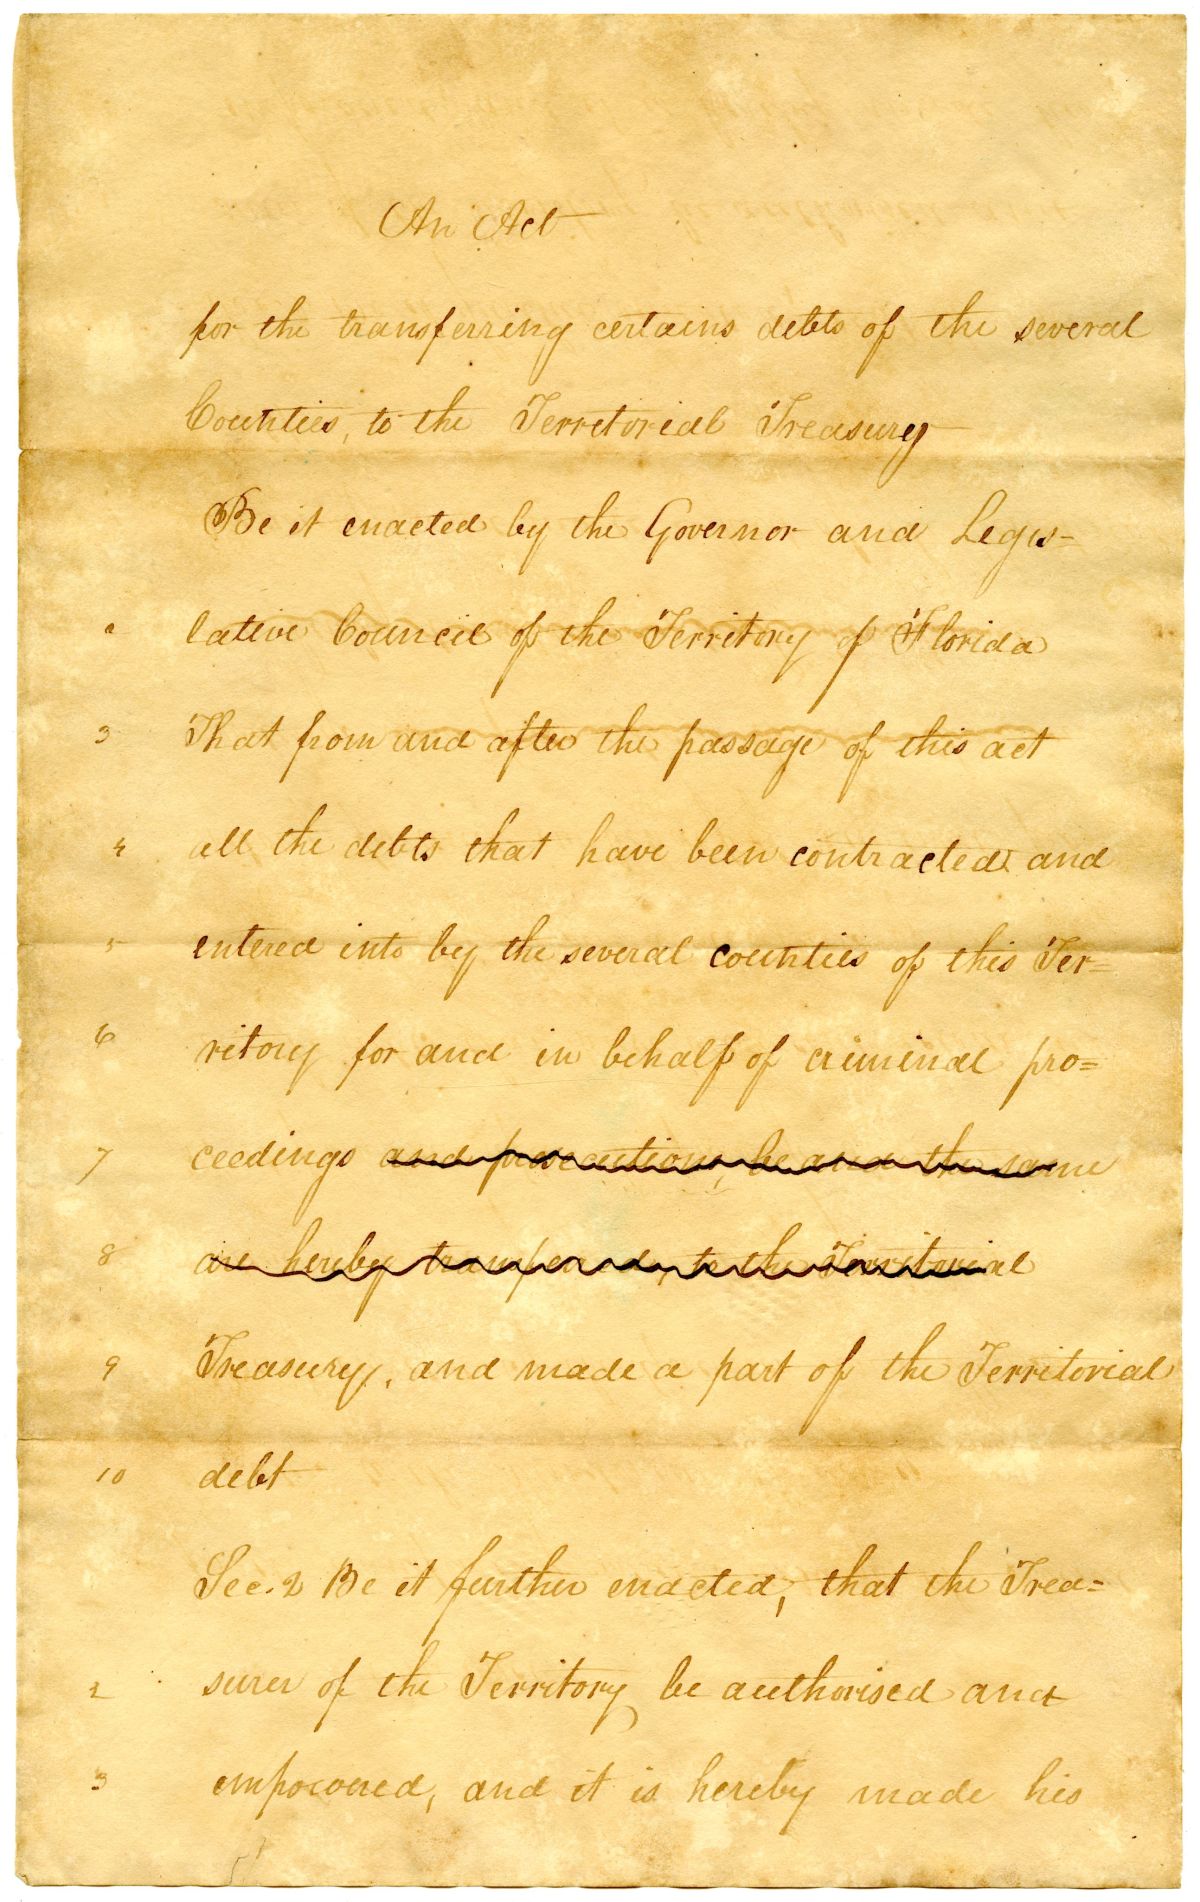 An Act
for the transferring certains debts of the several
Counties, to the Territorial Treasury
Be it enacted by the Governor and Legis=
2 lative Council of the Territory of Florida
3 That from and after the passage of this act
4 all the debts that have been contracted and
5 entered into by the several counties of this Ter=
6 ritory for and in behalf of criminal pro=
7 ceedings and prosecutions, be and the same
8 are hereby transfered, to the Territorial
9 Treasury, and made a part of the Territorial
10 debt
Sec. 2 Be it further enacted, that the Trea=
2 surer of the Territory be authorised and
3 empowered, and it is hereby made his